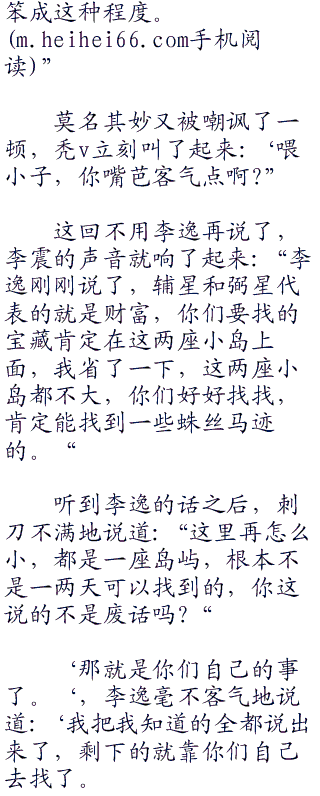 笨成这种程度。
(m.heihei66.com手机阅
读)”
莫名其妙又被嘲讽了一
顿，秃v立刻叫了起来：‘喂
小子，你嘴芭客气点啊?”
这回不用李逸再说了，
李震的声音就响了起来：“李
逸刚刚说了，辅星和弼星代
表的就是财富，你们要找的
宝藏肯定在这两座小岛上
面，我省了一下，这两座小
岛都不大，你们好好找找，
肯定能找到一些蛛丝马迹
的。“
听到李逸的话之后，刺
刀不满地说道：“这里再怎么
小，都是一座岛屿，根本不
是一两天可以找到的，你这
说的不是废话吗？“
‘那就是你们自己的事
了。‘，李逸毫不客气地说
道：‘我把我知道的全都说出
来了，剩下的就靠你们自己
去找了。